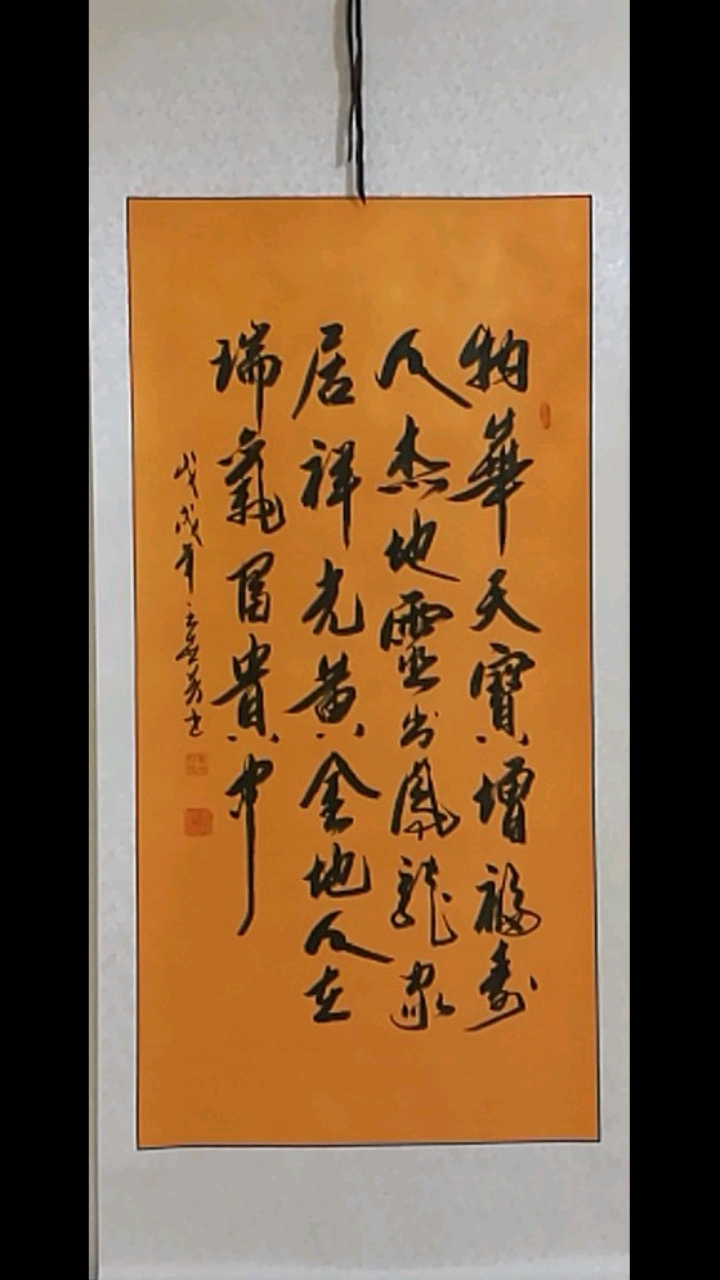 物華天寶增福壽
人杰地靈出鳳龍家
居祥光黃金地人在
瑞氣富貴中
戊戌年